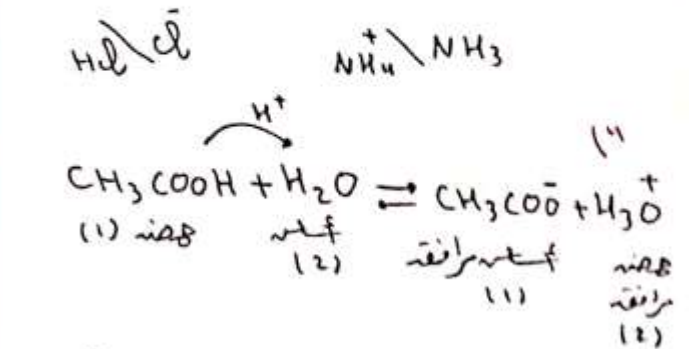 HCl\Cl⁻ NH₄⁺\NH₃
H⁺
CH₃COOH + H₂O ⇌ CH₃COO⁻ + H₃O⁺
حمض (1) أساس (2) أساس مرافق (1) حمض مرافق (2)